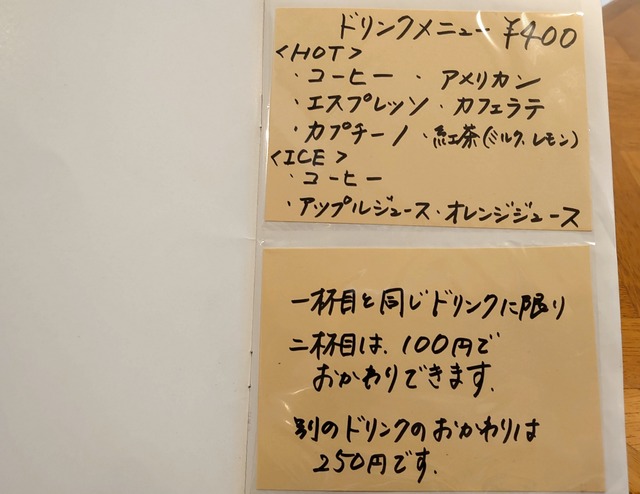 ドリンクメニュー ¥400
<HOT>
・コーヒー ・アメリカン
・エスプレッソ ・カフェラテ
・カプチーノ ・紅茶(ミルク、レモン)
<ICE>
・コーヒー
・アップルジュース ・オレンジジュース
一杯目と同じドリンクに限り
二杯目は、100円で
おかわりできます。
別のドリンクのおかわりは
250円です。